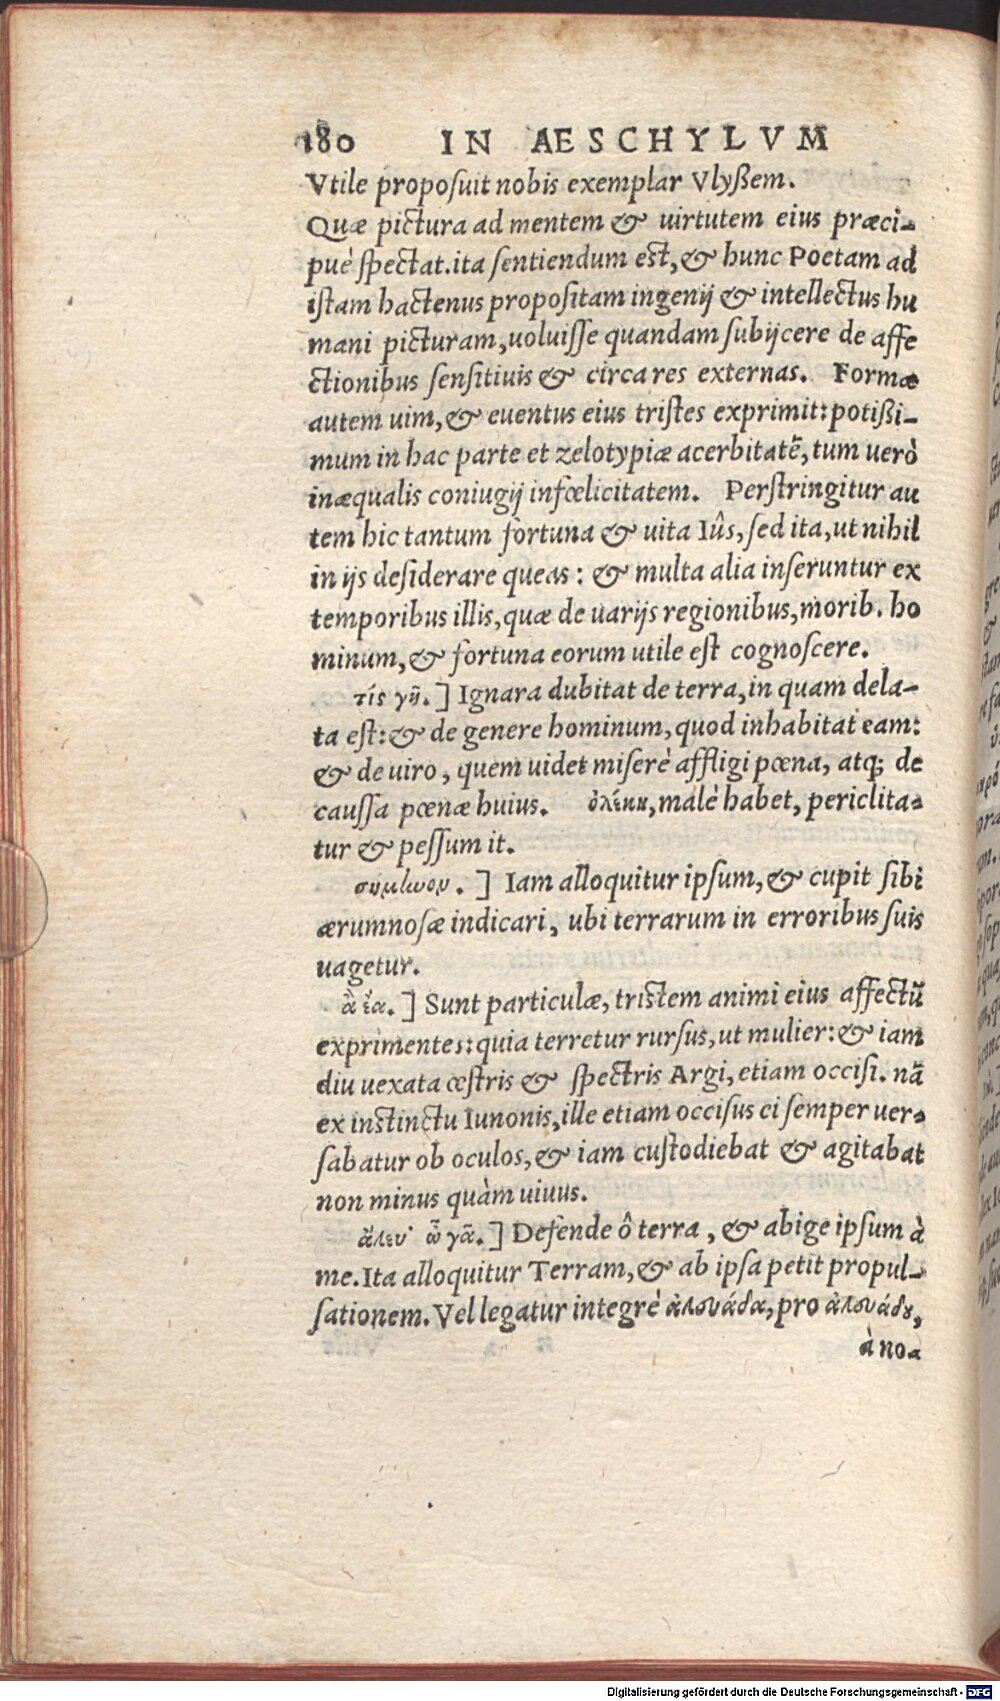 180 IN AESCHYLVM
Vtile proposuit nobis exemplar Vlyßem.
Quæ pictura ad mentem & uirtutem eius præci-
puè spectat. ita sentiendum est, & hunc Poetam ad
istam hactenus propositam ingenij & intellectus hu
mani picturam, uoluisse quandam subijcere de affe
ctionibus sensitiuis & circa res externas. Formæ
autem uim, & euentus eius tristes exprimit: potißi-
mum in hac parte et zelotypiæ acerbitatē, tum uerò
inæqualis coniugij infœlicitatem. Perstringitur au
tem hic tantum fortuna & uita Iûs, sed ita, ut nihil
in ijs desiderare queas: & multa alia inseruntur ex
temporibus illis, quæ de uarijs regionibus, morib. ho
minum, & fortuna eorum utile est cognoscere.
τίς γῆ.] Ignara dubitat de terra, in quam dela-
ta est: & de genere hominum, quod inhabitat eam:
& de uiro, quem uidet miserè affligi pœna, atq; de
caussa pœnæ huius. ὀλέκη, malè habet, periclita-
tur & pessum it.
σήμηνον.] Iam alloquitur ipsum, & cupit sibi
ærumnosæ indicari, ubi terrarum in erroribus suis
uagetur.
ἆ ἔα.] Sunt particulæ, tristem animi eius affectū
exprimentes: quia terretur rursus, ut mulier: & iam
diu uexata œstris & spectris Argi, etiam occisi. nā
ex instinctu Iunonis, ille etiam occisus ei semper uer-
sabatur ob oculos, & iam custodiebat & agitabat
non minus quàm uiuus.
ἄλευ' ὦ γᾶ.] Defende ô terra, & abige ipsum à
me. Ita alloquitur Terram, & ab ipsa petit propul-
sationem. Vel legatur integrè ἀλουάδα, pro ἀλουάδȣ,
à no-
Digitalisierung gefördert durch die Deutsche Forschungsgemeinschaft - DFG